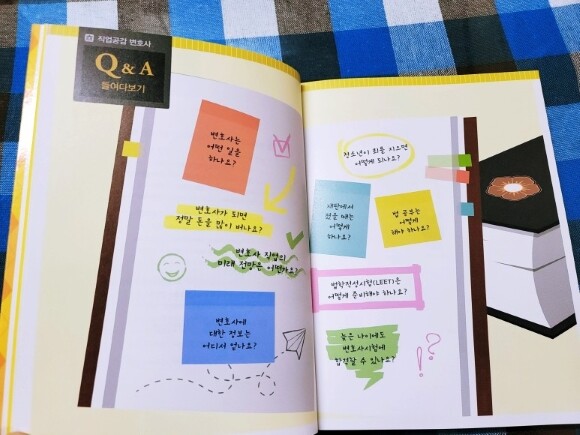 직업공감 변호사
Q & A
들여다보기
변호사는
어떤 일을
하나요?
변호사가 되면
정말 돈을 많이 버나요?
변호사 직업의
미래 전망은 어떤가요?
변호사에
대한 정보는
어디서 얻나요?
청소년이 죄를 지으면
어떻게 되나요?
재판에서
졌을 때는
어떻게
하나요?
법 공부는
어떻게
해야 하나요?
법학적성시험(LEET)은
어떻게 준비해야 하나요?
늦은 나이에도
변호사시험에
합격할 수 있나요?